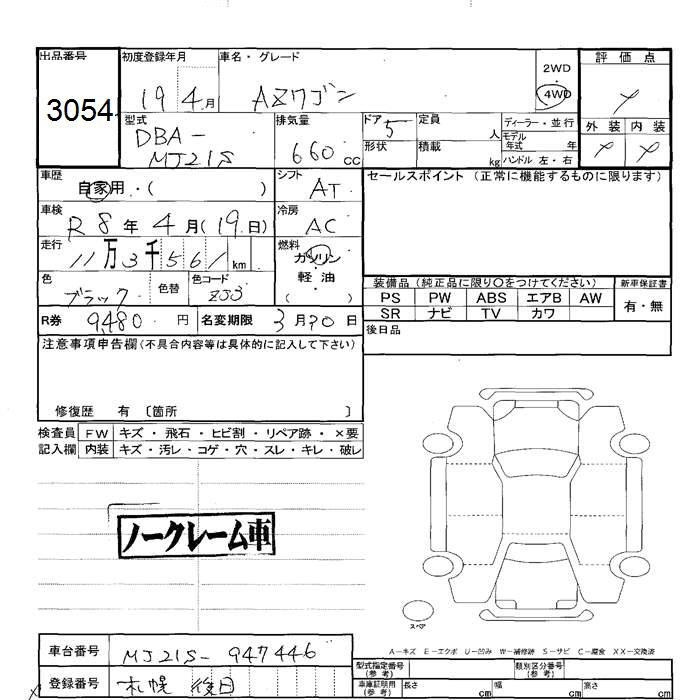 出品番号 初度登録年月 車名・グレード 評価点
3054 19 4月 AZワゴン 2WD 4WD
型式 排気量 ドア 定員 ディーラー・並行 外装 内装
DBA-MJ21S 660cc 5 人 モデル年式 年
形状 積載 kg ハンドル 左・右
車歴 自家用・( ) シフト AT セールスポイント (正常に機能するものに限ります)
車検 R8年4月(19日) 冷房 AC
走行 11万3千561km 燃料 ガソリン・軽油 ( )
色 ブラック 色替 色コード ZJ3
装備品 (純正品に限り○をつけてください) 新車保証書
PS PW ABS エアB AW 有・無
SR ナビ TV カワ
R券 9,480円 名変期限 3月 日 後日品
注意事項申告欄(不具合内容等は具体的に記入して下さい)
修復歴 有 〔箇所 〕
検査員 FW キズ・飛石・ヒビ割・リペア跡・×要
記入欄 内装 キズ・汚レ・コゲ・穴・スレ・キレ・破レ
ノークレーム車
スペア
A-キズ E-エクボ U-凹み W-補修跡 S-サビ C-腐食 XX-交換済
車台番号 MJ21S-947446
登録番号 札幌 後日
型式指定番号(参考) 類別区分番号(参考)
車庫証明用(参考) 長さ cm 幅 cm 高さ cm